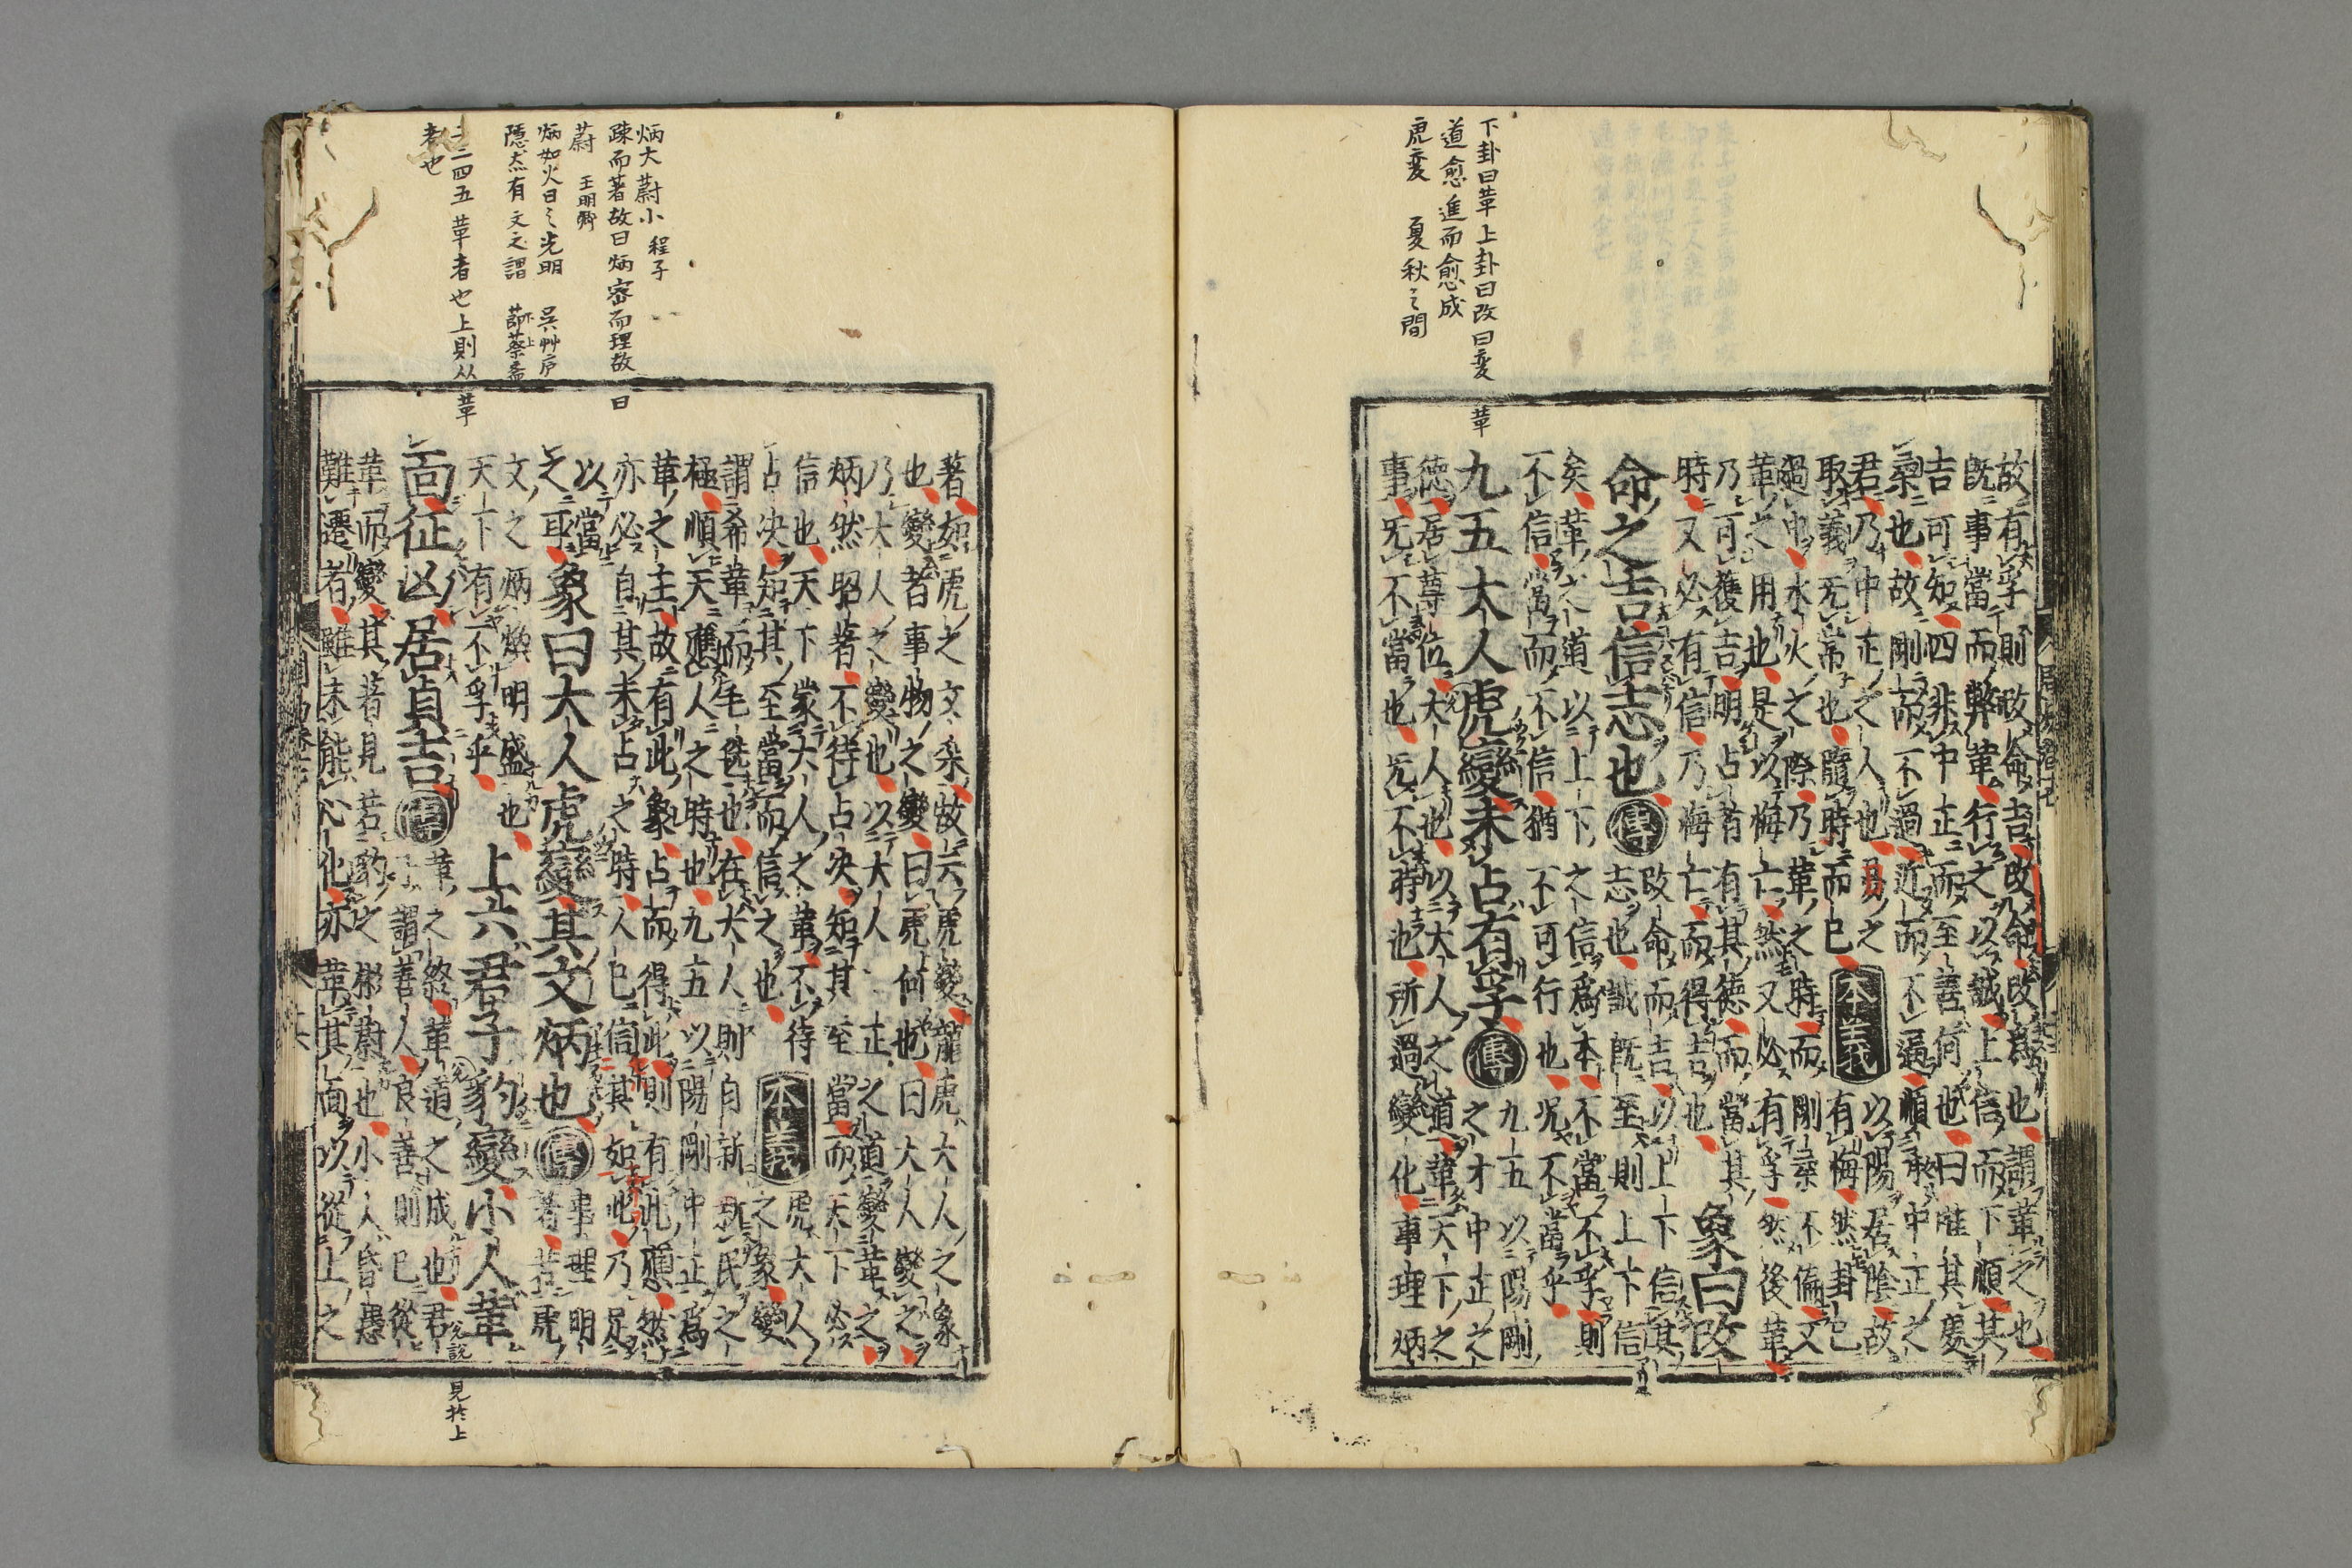 下卦曰革上卦曰改曰変革
道愈進而愈成
虎変 夏秋之間
故有孚則改命吉改命改爲也謂革之也
既事當而弊革行之以誠上信而下順其
吉可知四非中正而至善何也曰唯其處
柔也故剛而不過近而不逼順承中正之
君乃中正之人也易之
取義无常也隨時而已
本義
以陽居陰故
有悔然卦已
過中水火之際乃革之時而剛柔不偏又
革之用也是以悔亡然又必有孚然後革
乃可獲吉明占者有其德而當其
時又必有信乃悔亡而得吉也
象曰改
命之吉信志也
傳
改命而吉以上下信其
志也誠既至則上下信
矣革之道以上下之信爲本不當不孚則
不信當而不信猶不可行也况不當乎
九五大人虎變未占有孚
傳
九五以陽剛
之才中正之
德居尊位大人也以大人之道革天下之
事无不當也无不時也所過變化事理炳
炳大蔚小 程子
疎而著故曰炳密而理故曰
蔚 王明
炳如火日之光明 吳艸庐
隱然有文之謂 蔡
二三四五革者也上則从革
者也
著如虎之文采故云虎變龍虎大人之象
也變者事物之變曰虎何也曰大人變之
乃大人之變也以大人中正之道變革之
炳然昭著不待占決知其至當而天下必
信也天下蒙大人之革不待
占決知其至當而信之也
本義
虎大人
之象變
謂希革而毛毨也在大人則自新新民之
極順天應人之時也九五以陽剛中正爲
革之主故有此象占而得此則有此應然
亦必自其未占之時人已信其如此乃足
以當
之耳
象曰大人虎變其文炳也
傳
事理明
著若虎
文之炳煥明盛也
天下有不孚乎
上六君子豹變小人革
面征凶居貞吉
傳
革之終革道之成也君
子謂善人良善則已從
革而變其著見若豹之彬蔚也小人昏愚
難遷者雖未能心化亦革其面以從上之
見於上